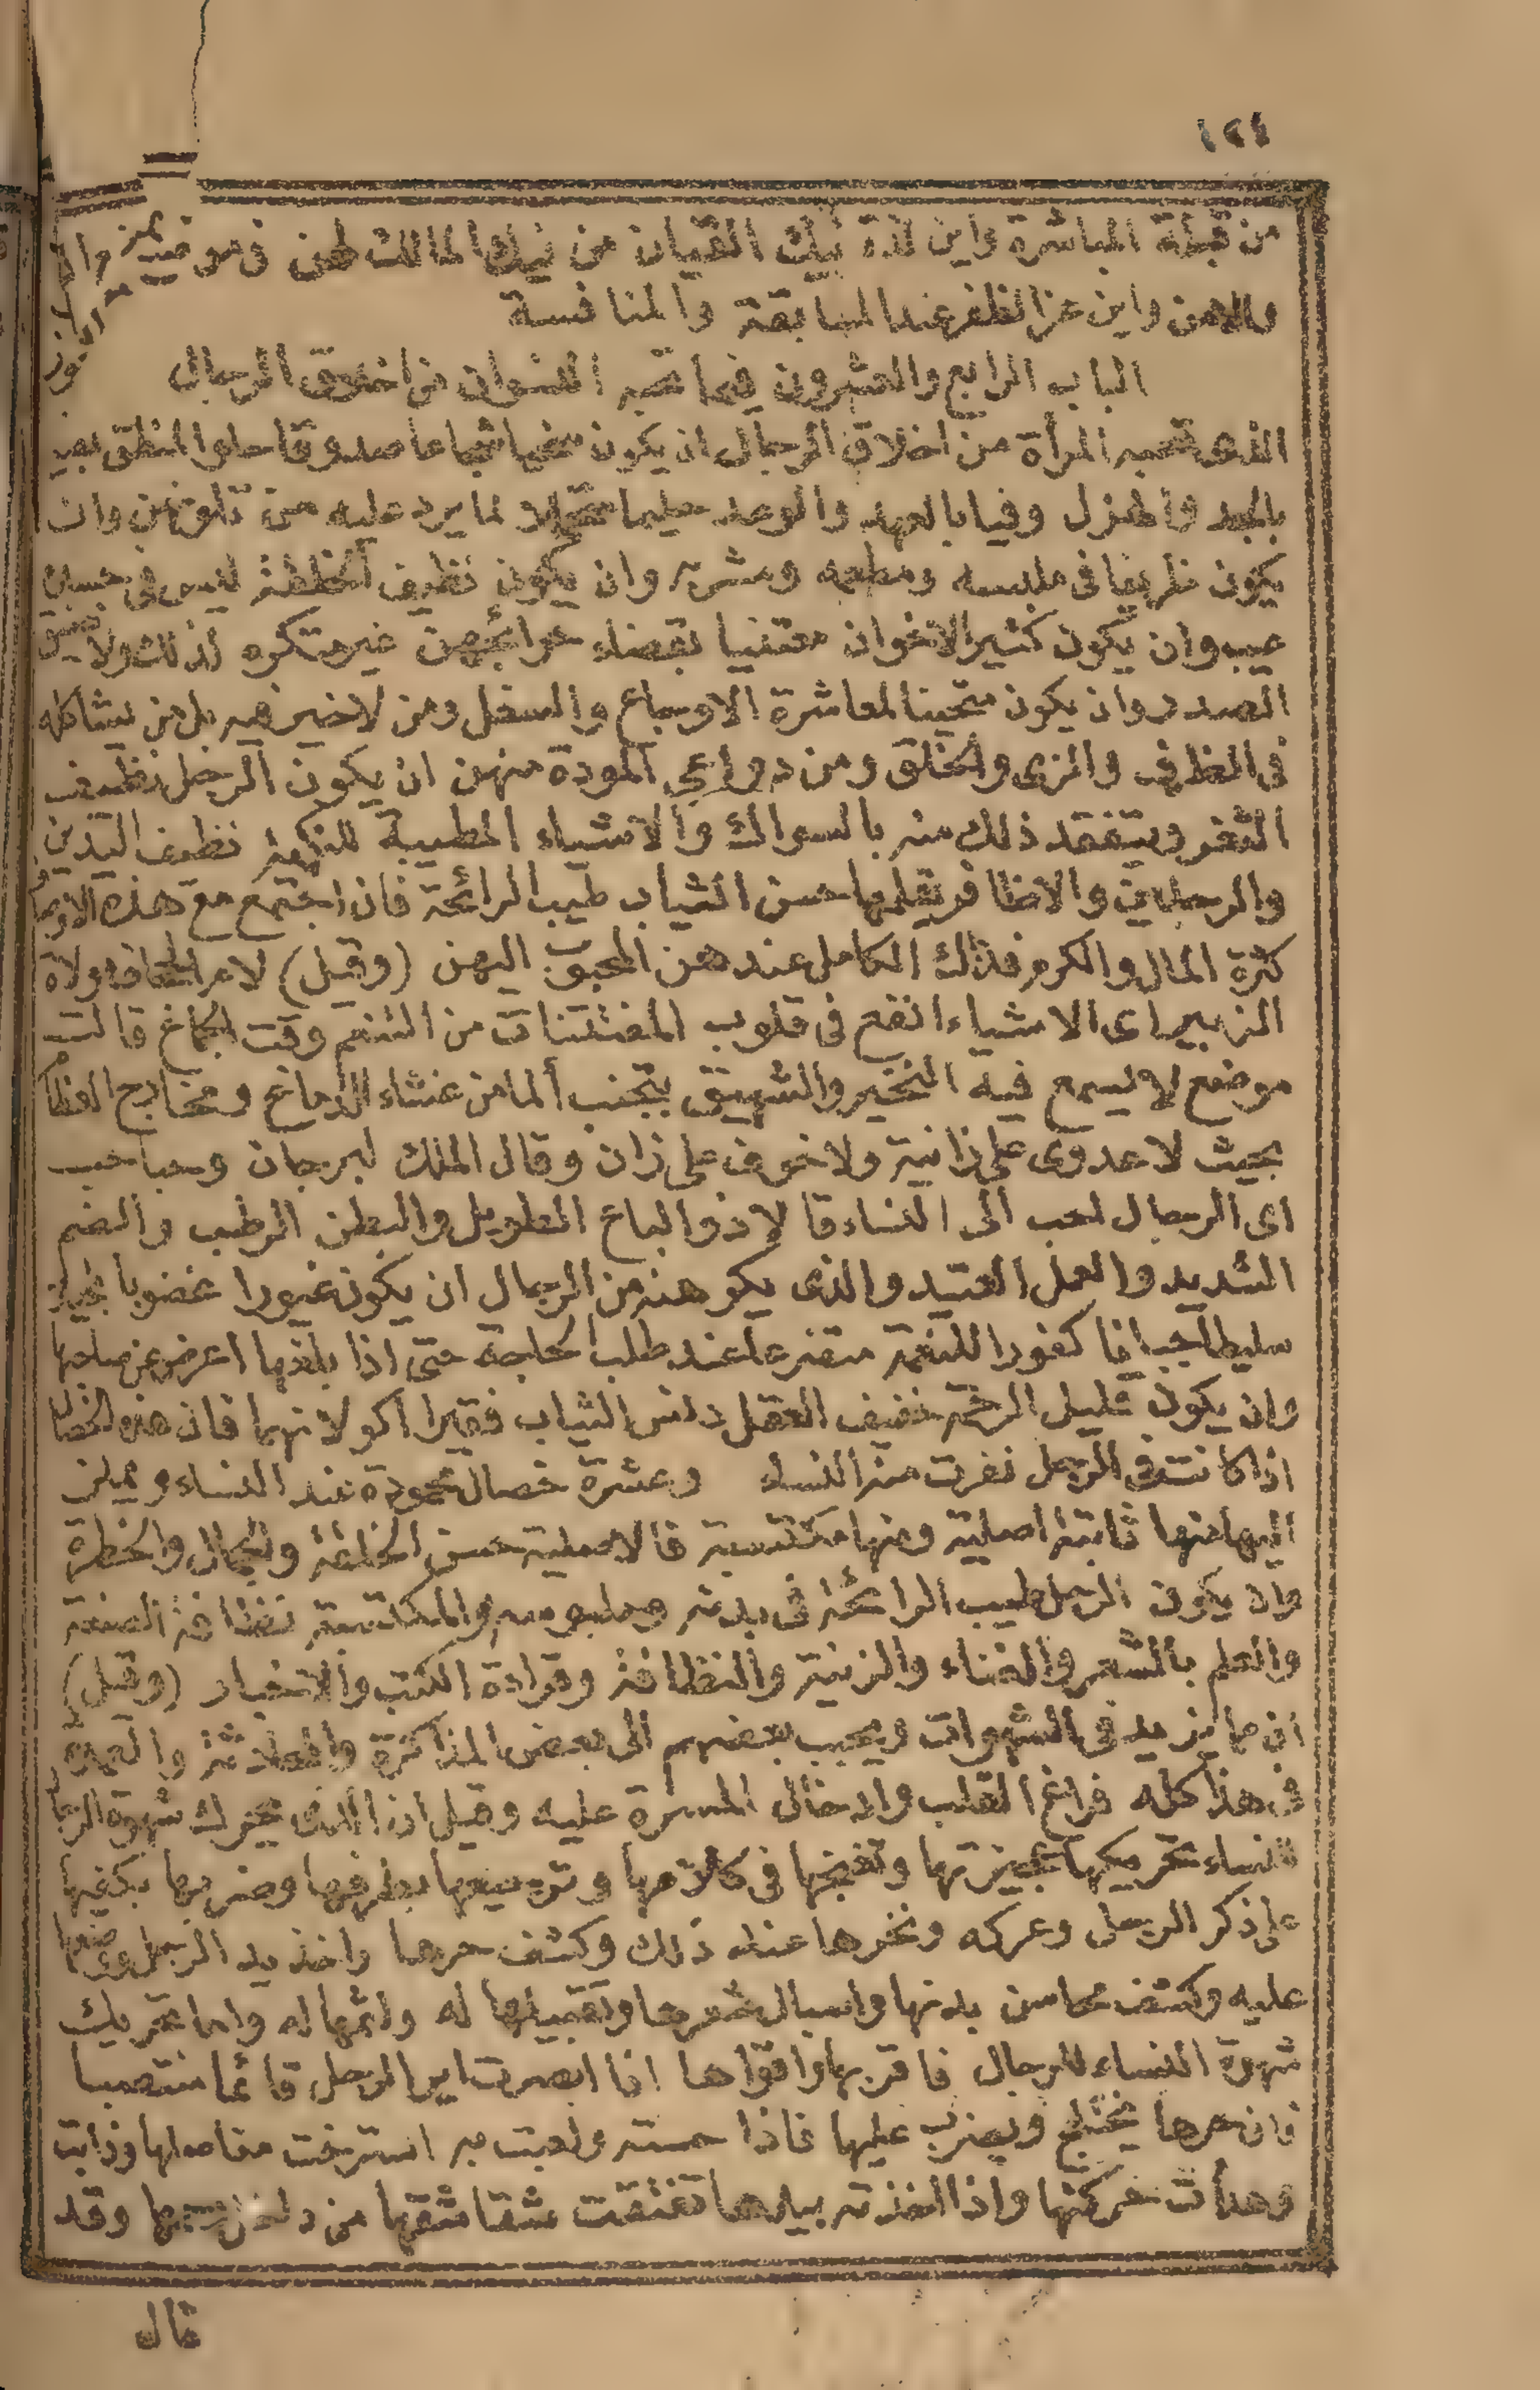 ١٢٤
من قبلة المباشرة واين لذة نيك القيان من نيك المالك لهن فى موضع
والامن واين عز الظفر عند المسابقة والمنافسة
الباب الرابع والعشرون فيما تحبه النسوان من اخلاق الرجال
الذى تحبه المرأة من اخلاق الرجال ان يكون سخيا شجاعا صدوقا حلو المنطق بصير
بالجد والهزل وفيا بالعهد والوعد حليما متحملا لما يرد عليه من تلونهن وان
يكون ظريفا فى ملبسه ومطعمه ومشربه وان يكون نظيف الخلقة ليس فى جسده
عيب وان يكون كثير الاخوان معتنيا بقضاء حوائجهن غير متكره لذلك ولا ضيق
الصدر وان يكون متجنبا لمعاشرة الاوباع والسفل ومن لا خير فيه بل من يشاكله
فى الظرف والزى والخلق ومن دواعى المودة منهن ان يكون الرجل نظيف
الثغر ويتفقد ذلك منه بالسواك والاشياء المطيبة للنكهة نظيف اليدين
والرجلين والاظافر يقلمها حسن الثياب طيب الرائحة فان اجتمع مع هذه الاوصاف
كثرة المال والكرم فذلك الكامل عندهن المحبوب اليهن (وقيل) لام ولاة
الزبير اى الاشياء انفع فى قلوب المغتتنات من التنعم وقت الجماع قالت
موضع لا يسمع فيه النخير والشهيق يتجنب ألما من غشاء الدماغ ومخارج العظام
بحيث لا عدوى على زانية ولا خوف على زان وقال الملك لبرجان وحباحب
اى الرجال احب الى النساء قالا ذو الباع الطويل والبطن الرطب والضم
الشديد والعمل العتيد والذى يكرهنه من الرجال ان يكون غيورا غضوبا بخيلا
سليطا جبانا كفورا للنعمة متضرعا عند طلب الحاجة حتى اذا بلغها اعرض عن صاحبها
وان يكون قليل الرحمة خفيف العقل دنس الثياب فقيرا اكولا نهما فان هذه الخصال
اذا كانت فى الرجل نفرت منه النساء وعشرة خصال محمودة عند النساء ويملن
اليها منها ثابتة اصلية ومنها مكتسبة فالاصلية حسن الخلقة والجمال والخطرة
وان يكون الرجل طيب الرائحة فى بدنه وملبوسه والمكتسبة نظافة الصنعة
والعلم بالشعر والغناء والزينة والنظافة وقراءة الكتب والاخبار (وقيل)
ان مما يزيد فى الشهوات ويحبب بعضهم الى بعض المذاكرة والمحادثة والعمدة
فى هذا كله فراغ القلب وادخال المسرة عليه وقيل ان الذى يحرك شهوة الرجال
للنساء تحريكها عجيزتها وتغنجها فى كلامها وترميها بطرفها وضربها بكفيها
على ذكر الرجل وعركه ونخرها عند ذلك وكشف حرها واخذ يد الرجل ووضعها
عليه وكشف محاسن بدنها واسبال شعرها وتقبيلها له وائمها له واما تحريك
شهوة النساء للرجال فاقربها واقواها اذا ابصرت اير الرجل قائما منتصبا
فان حرها يختلج ويضرب عليها فاذا حسته ولعبت به استرخت مفاصلها وذابت
وهدأت حركتها واذا اخذته بيدها تفتقت شقاشقها من داخل وقد
قال